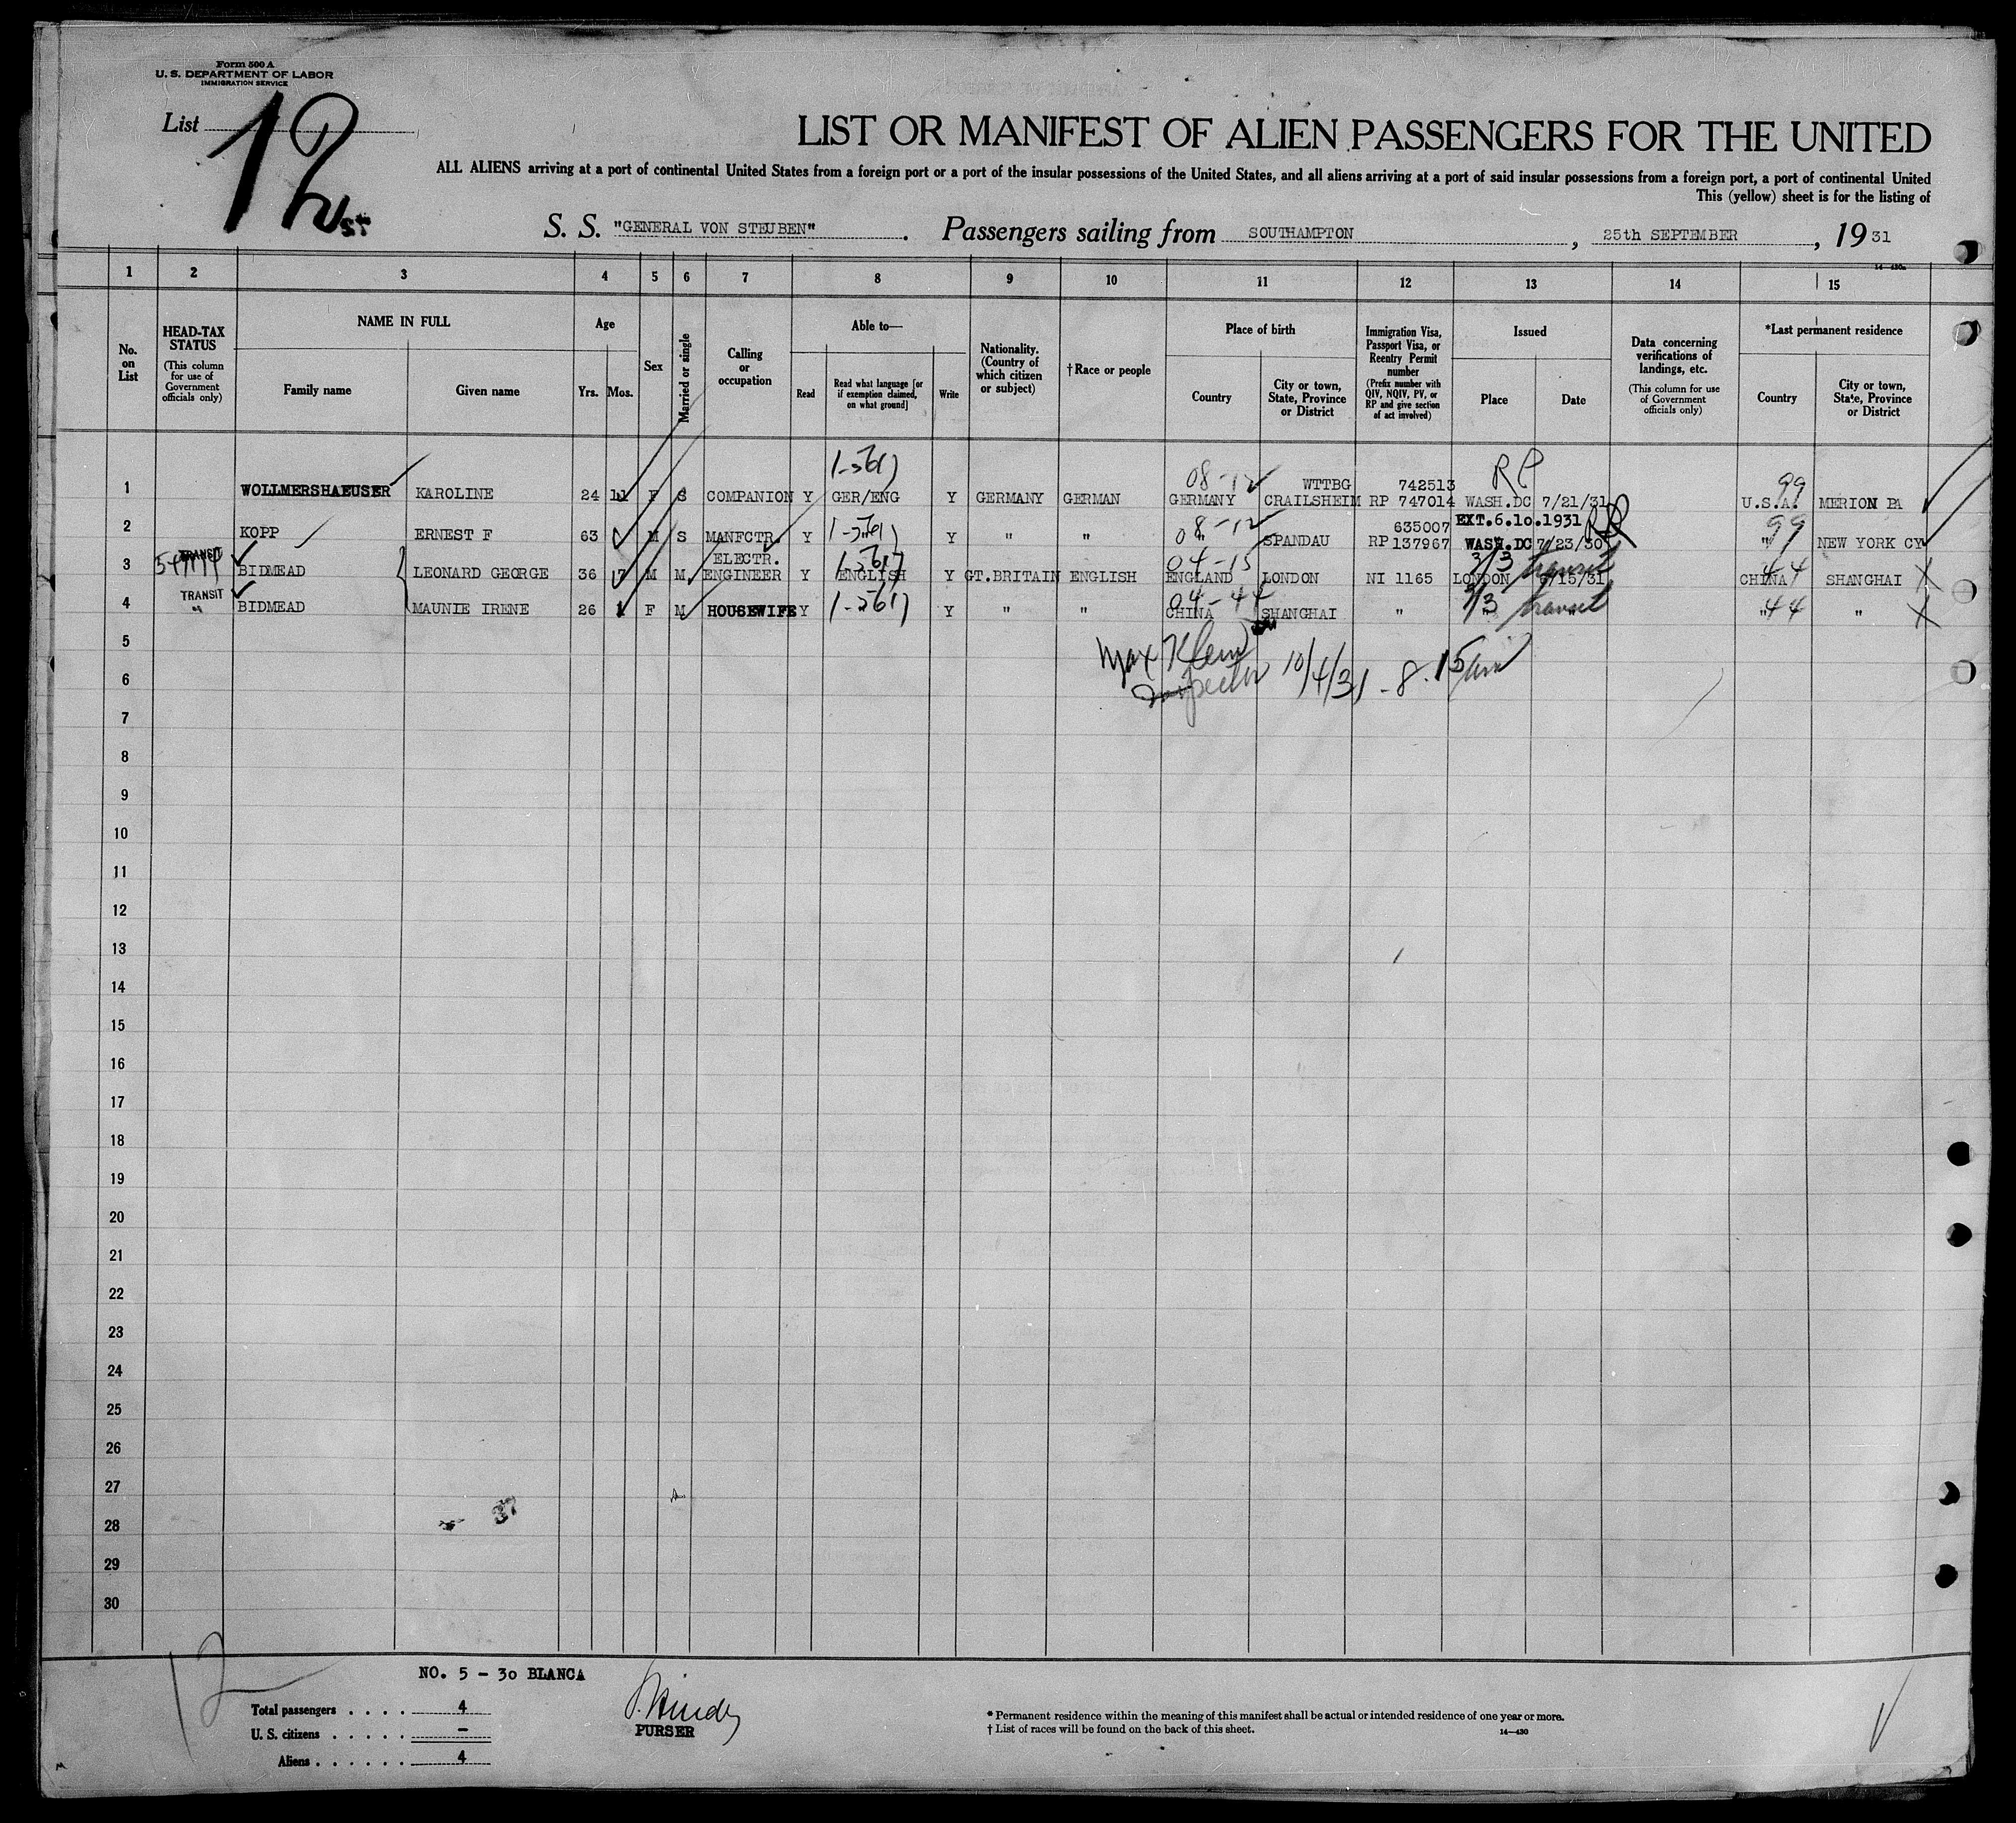 Form 500 A
U. S. DEPARTMENT OF LABOR
IMMIGRATION SERVICE
List 12
LIST OR MANIFEST OF ALIEN PASSENGERS FOR THE UNITED
ALL ALIENS arriving at a port of continental United States from a foreign port or a port of the insular possessions of the United States, and all aliens arriving at a port of said insular possessions from a foreign port, a port of continental United
This (yellow) sheet is for the listing of
S. S. "GENERAL VON STEUBEN". Passengers sailing from SOUTHAMPTON, 25th SEPTEMBER, 19 31
14—430a
1 2 3 4 5 6 7 8 9 10 11 12 13 14 15
No. on List
HEAD-TAX STATUS
(This column for use of Government officials only)
NAME IN FULL
Family name
Given name
Age
Yrs. Mos.
Sex
Married or single
Calling or occupation
Able to—
Read
Read what language [or if exemption claimed, on what ground]
Write
Nationality. (Country of which citizen or subject)
† Race or people
Place of birth
Country
City or town, State, Province or District
Immigration Visa, Passport Visa, or Reentry Permit number
(Prefix number with QIV, NQIV, PV, or RP and give section of act involved)
Issued
Place
Date
Data concerning verifications of landings, etc.
(This column for use of Government officials only)
*Last permanent residence
Country
City or town, State, Province or District
08-12 WTTBG 742513 RP 99
1 WOLLMERSHAEUSER KAROLINE 24 11 F S COMPANION Y GER/ENG Y GERMANY GERMAN GERMANY CRAILSHEIM RP 747014 WASH.DC 7/21/31 U.S.A. MERION PA
08-12 635007 EXT.6.10.1931 RP 99
2 KOPP ERNEST F 63 M S MANFCTR. Y Y " " " SPANDAU RP 137967 WASH.DC 7/23/30 " NEW YORK CY
TRANSIT ELECTR. 04-15 3/3 transit 44
3 BIDMEAD LEONARD GEORGE 36 7 M M ENGINEER Y ENGLISH Y GT.BRITAIN ENGLISH ENGLAND LONDON NI 1165 LONDON 9/15/31 CHINA SHANGHAI X
TRANSIT 04-44 3/3 transit 44
4 " BIDMEAD MAUNIE IRENE 26 1 F M HOUSEWIFE Y Y " " CHINA SHANGHAI " " " " " X
5
Max Klein
Inspector 10/4/31 - 8.15 am
6
7
8
9
10
11
12
13
14
15
16
17
18
19
20
21
22
23
24
25
26
27
28
29
30
12
NO. 5 - 30 BLANCA
Total passengers . . . . 4
U. S. citizens . . . . . —
Aliens . . . . . . 4
PURSER
* Permanent residence within the meaning of this manifest shall be actual or intended residence of one year or more.
† List of races will be found on the back of this sheet.
14—430